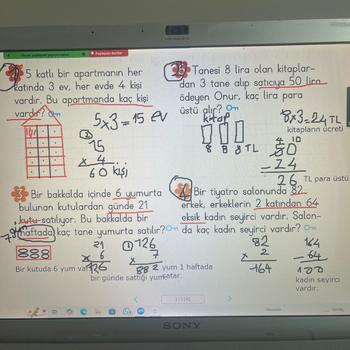 5 katlı bir apartmanın her
katında 3 ev, her evde 4 kişi
vardır? Bu apartmanda kaç kişi
vardır? On
5x3=15 ev
15
x 4
60 kişi
Tanesi 8 lira olan kitaplar-
dan 3 tane alıp satıcıya 50 lira
ödeyen Onur, kaç lira para
üstü alır? On
kitap
8 8 8 TL
8x3=24 TL
kitapların ücreti
4 10
50
- 24
26 TL para üstü
Bir bakkalda içinde 6 yumurta
bulunan kutulardan günde 21
kutu satılıyor. Bu bakkalda bir
haftada kaç tane yumurta satılır? On
7 gün
888
Bir kutuda 6 yum var
21
x 6
126
bir günde sattığı yum
1 126
x 7
882 yum 1 haftada
satar.
Bir tiyatro salonunda 82
erkek, erkeklerin 2 katından 64
eksik kadın seyirci vardır. Salon-
da kaç kadın seyirci vardır? On
82
x 2
164
164
- 64
100
kadın seyirci
vardır.
SONY